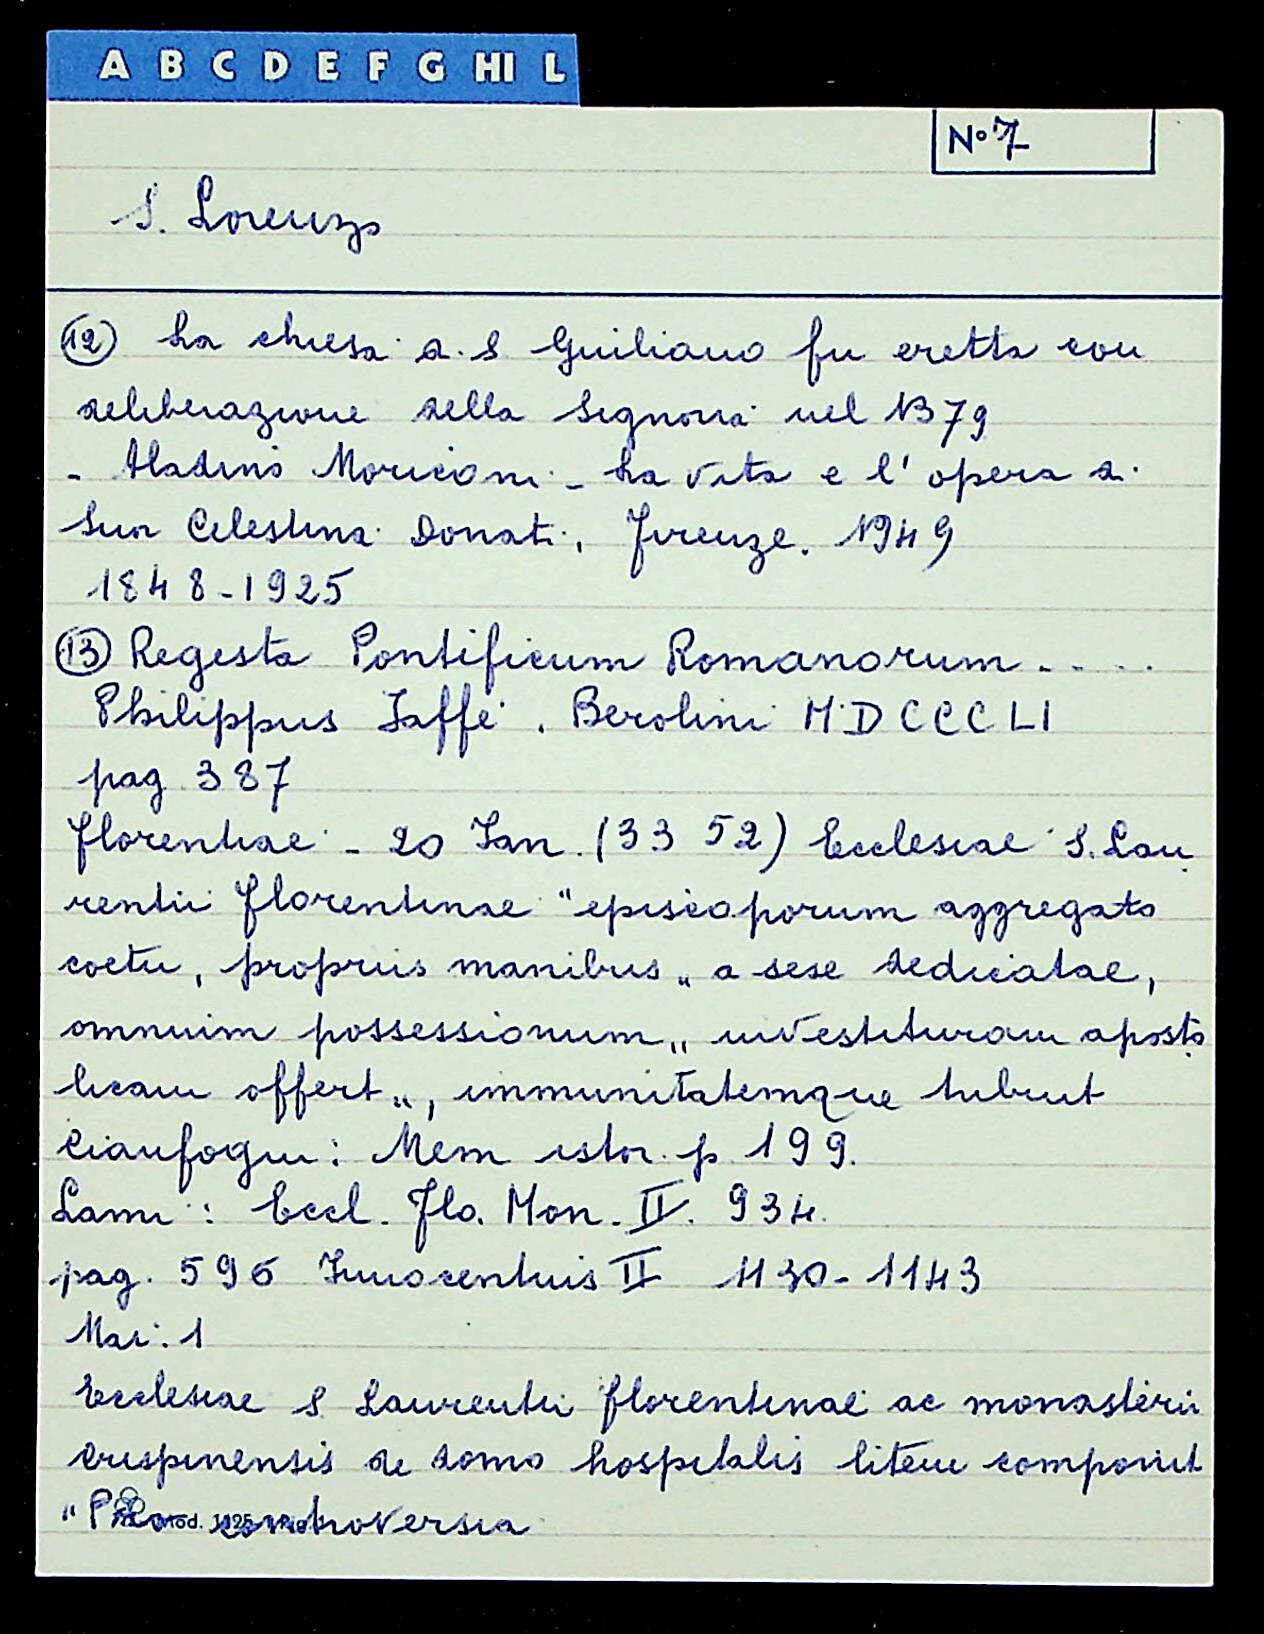 A B C D E F G HI L
N° 7
S. Lorenzo
(12) La chiesa di S Guiliano fu eretta con
deliberazione della Signoria nel 1379
- Aladino Moriconi - La vita e l' opera di
Suor Celestina Donati, Firenze. 1949
1848-1925
(13) Regesta Pontificum Romanorum . . . .
Philippus Jaffé . Berolini MDCCCLI
pag 387
Florentiae - 20 Jan. (33 52) Ecclesiae S. Lau
rentii Florentinae "episcoporum aggregato
coetu, propriis manibus„ a sese dedicatae,
omnium possessionum „ investituram aposto
licam offert„, immunitatemque tribuit
Cianfogni: Mem istor. p 199.
Lami : Eccl. Flo. Mon. II. 934.
pag. 596 Innocentius II 1130-1143
Mai. 1
Ecclesiae S Laurentii Florentinae ac monasterii
crispinensis de domo hospitalis litem componit
"Pro controversia
Mod. 1025